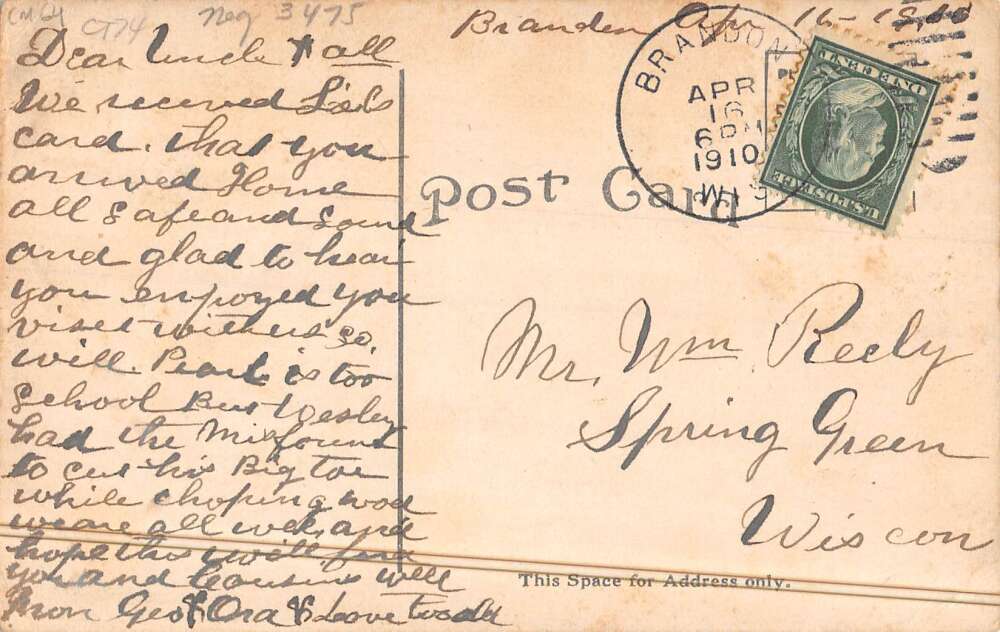 CT74
Neg 3475
Branden Apr 16-1910
Dear Uncle & all
We received
card. that you
arrived Home
all Safe and Sound
and glad to hear
you enjoyed you
viset with us so
will. Pearl is too
School But Wesley
had the Misfount
to cut his Big toe
while choping wood
we are all well, and
hope this will find
you and Cousins well
From Geo & Ora & Love to all
BRANDON
APR
16
6 PM
1910
WIS
U.S. POSTAGE
ONE CENT
Post Card
Mr. Wm. Reely
Spring Green
Wiscon
This Space for Address only.